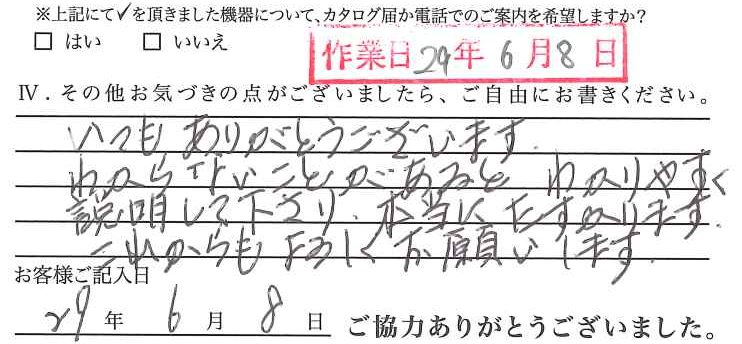 ※上記にて✓を頂きました機器について、カタログ届か電話でのご案内を希望しますか?
□ はい □ いいえ
作業日 29年 6月 8日
Ⅳ．その他お気づきの点がございましたら、ご自由にお書きください。
いつもありがとうございます.
わからないことがあると わかりやすく
説明して下さり、本当にたすかります.
これからもよろしくお願いします.
お客様ご記入日
29 年 6 月 8 日 ご協力ありがとうございました。